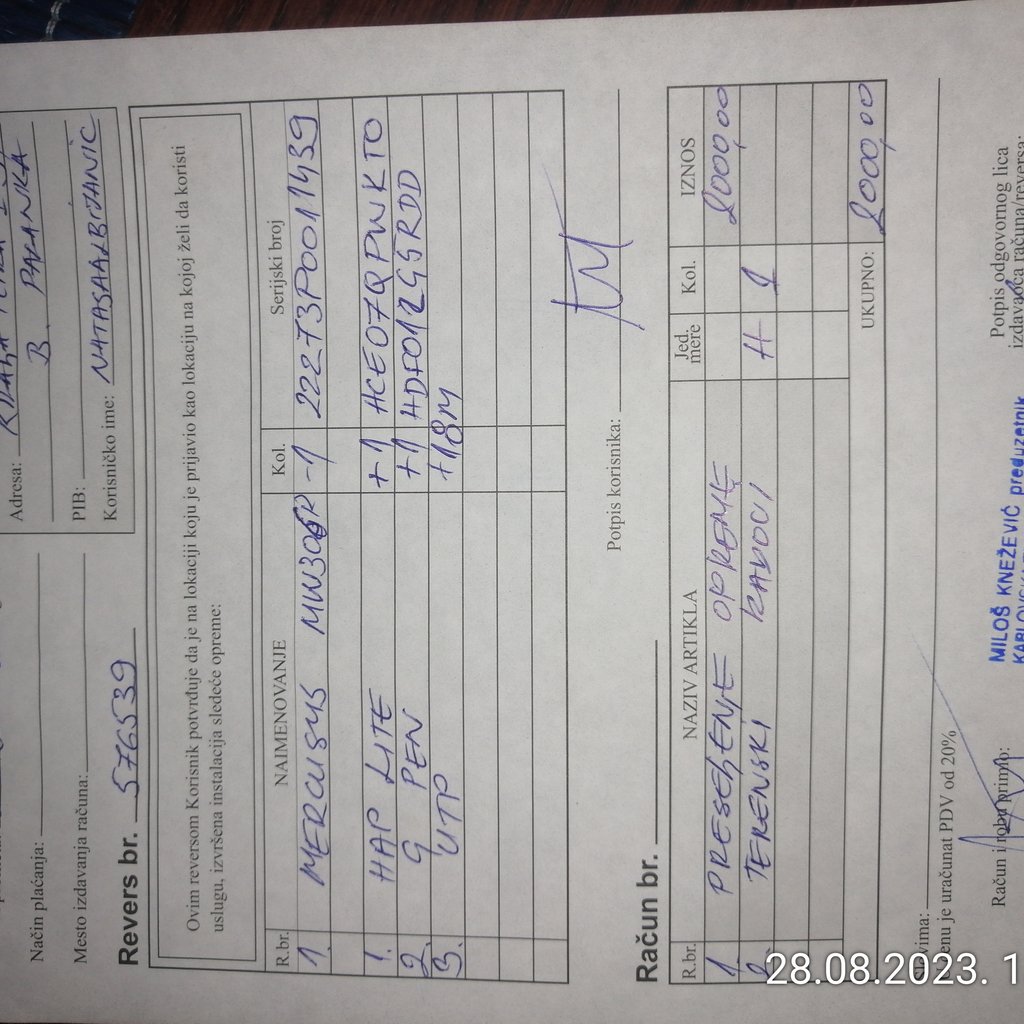 Adresa:
B. PALANKA
PIB:
Korisničko ime: NATASAARBITANIC
Način plaćanja:
Mesto izdavanja računa:
Revers br. 576539
Ovim reversom Korisnik potvrđuje da je na lokaciji koju je prijavio kao lokaciju na kojoj želi da koristi
uslugu, izvršena instalacija sledeće opreme:
R.br. NAIMENOVANJE Kol. Serijski broj
1. MERCUSYS MW306R -1 222T3P0011439
1. HAP LITE +1 HCE07QPWKTO
2. G PEN +1 HDF012G5RDD
3. UTP +18M
Potpis korisnika:
Račun br.
R.br. NAZIV ARTIKLA Jed. mere Kol. IZNOS
1. PRESELENJE OPREME 2000,00
2. TERENSKI RADOVI H 1
UKUPNO: 2000,00
Slovima:
U cenu je uračunat PDV od 20%
Račun i robu primio:
Potpis odgovornog lica
izdavaoca računa/reversa:
MILOŠ KNEŽEVIĆ preduzetnik
28.08.2023. 1